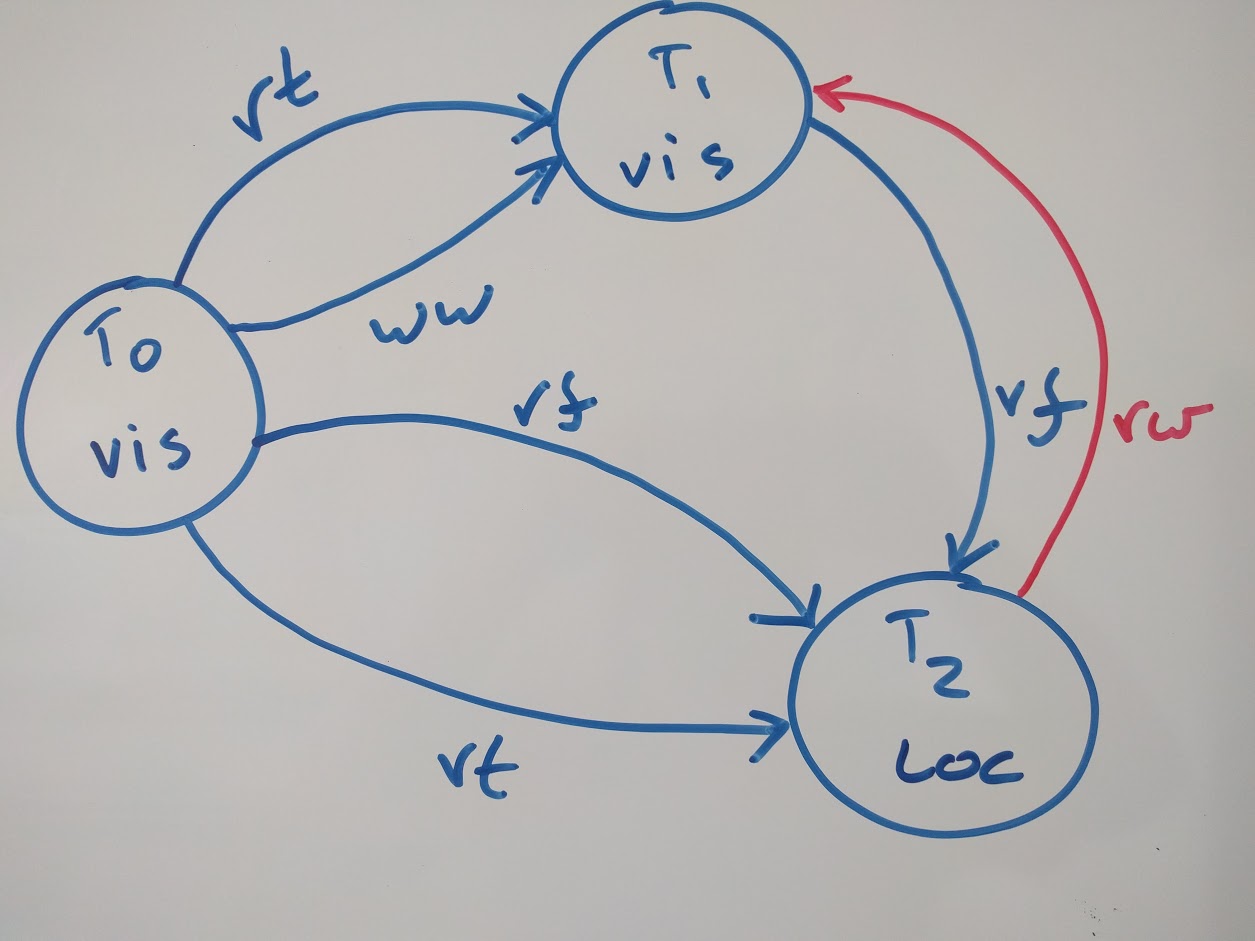 rt
T1
vis
ww
T0
vis
rf
rf
rw
T2
Loc
rt